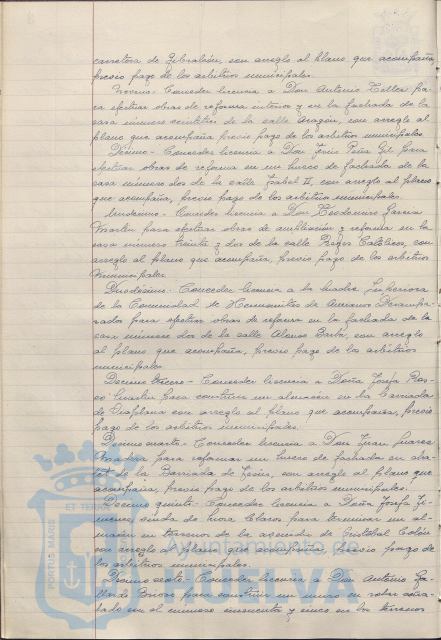 carretera de Gibraleón, con arreglo al plano que acompaña,
previo pago de los arbitrios municipales.
Noveno.- Conceder licencia a Don Antonio Tellez pa-
ra efectuar obras de reforma interior y en la fachada de la
casa número veintitres de la calle Aragon, con arreglo al
plano que acompaña, previo pago de los arbitrios municipales.
Décimo.- Conceder licencia a Don Jesús Peña Gil para
efectuar obras de reforma en un hueco de fachada de la
casa número dos de la calle Isabel II, con arreglo al plano
que acompaña, previo pago de los arbitrios municipales.
Undécimo.- Conceder licencia a Don Teodomiro Garcia
Martin para efectuar obras de ampliación y reforma en la
casa número treinta y dos de la calle Reyes Católicos, con
arreglo al plano que acompaña, previo pago de los arbitrios
municipales.
Duodécimo.- Conceder licencia a la Madre Superiora
de la Comunidad de Hermanitas de Ancianos Desampa-
rados para efectuar obras de reforma en la fachada de la
casa número dos de la calle Alonso Barba, con arreglo
al plano que acompaña, previo pago de los arbitrios
municipales.
Décimo tercero.- Conceder licencia a Doña Josefa
para construir un almacén en la Barriada
de con arreglo al plano que acompaña, previo
pago de los arbitrios municipales.
Décimo cuarto.- Conceder licencia a Don Juan Suarez
para reformar un hueco de fachada en
de la Barriada de con arreglo al plano que
acompaña, previo pago de los arbitrios municipales.
Décimo quinto.- Conceder licencia a Doña Josefa Ji-
menez, viuda de Mora Claros para terminar un al-
macén en terrenos de la avenida de Cristóbal Colón
con arreglo al plano que acompaña, previo pago de
los arbitrios municipales.
Décimo sexto.- Conceder licencia a Don Antonio Ga-
llardo para construir un muro en solar seña-
lado con el número cincuenta y cinco en los terrenos
PORTUS MARIS
ET TERRAE
Ayuntamiento de
HUELVA